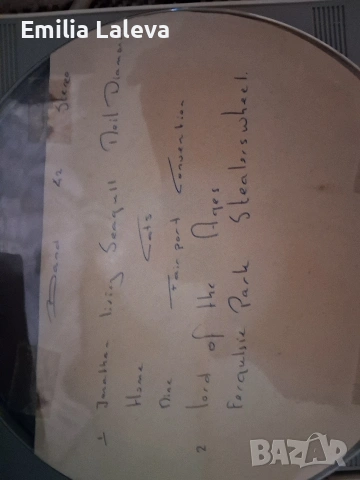 Emilia Laleva
Band 22 Stereo
1 Jonathan living Seagull Neil Diamond
Home Cats
Nine Fairport Convention
2 lord of the Ages
Fergulsie Park Stealerswheel.
BAZAR
bg